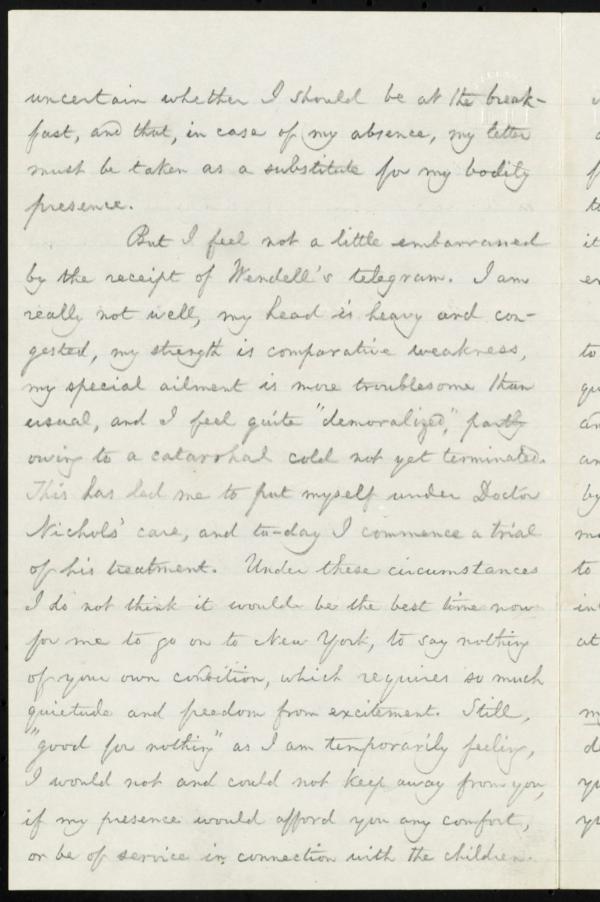 uncertain whether I should be at the break-
fast, and that, in case of my absence, my letter
must be taken as a substitute for my bodily
presence.
But I feel not a little embarrassed
by the receipt of Wendell's telegram. I am
really not well, my head is heavy and con-
gested, my strength is comparative weakness,
my special ailment is more troublesome than
usual, and I feel quite "demoralized," partly
owing to a catarrhal cold not yet terminated.
This has led me to put myself under Doctor
Nichols' care, and to-day I commence a trial
of his treatment. Under these circumstances
I do not think it would be the best time now
for me to go on to New York, to say nothing
of your own condition, which requires so much
quietude and freedom from excitement. Still,
"good for nothing" as I am temporarily feeling,
I would not and could not keep away from you,
if my presence would afford you any comfort,
or be of service in connection with the children.